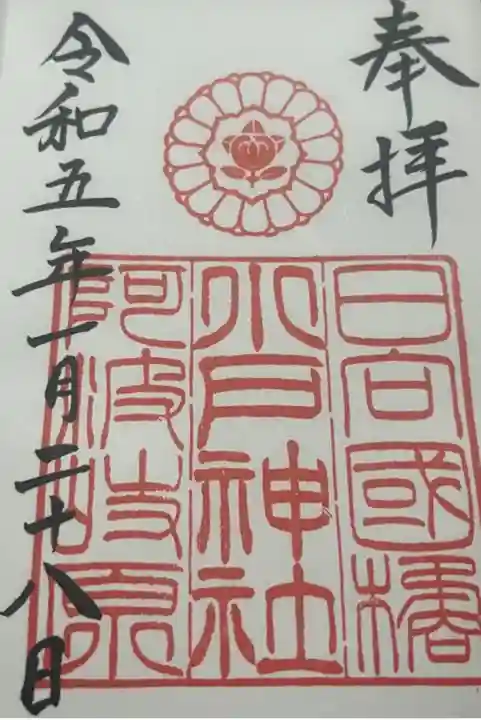 奉拝
日向國橘
小戸神社
阿波岐原
令和五年一月二十八日